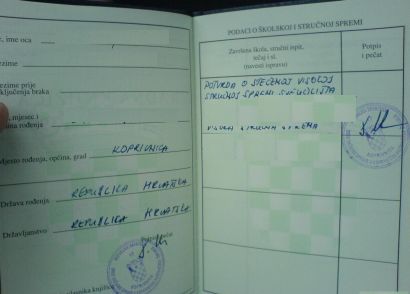 ime, ime oca
prezime
prezime prije
sklapanja braka
mjesec i
rođenja
Mjesto rođenja, općina, grad
KOPRIVNICA
Država rođenja
REPUBLIKA HRVATSKA
Državljanstvo
REPUBLIKA HRVATSKA
Potpis
PODACI O ŠKOLSKOJ I STRUČNOJ SPREMI
Završena škola, stručni ispit,
tečaj i sl.
(navesti ispravu)
Potpis
i pečat
POTVRDA O STEČENOJ VISOKOJ
STRUČNOJ SPREMI SVEUČILIŠTA
VISOKA STRUČNA SPREMA